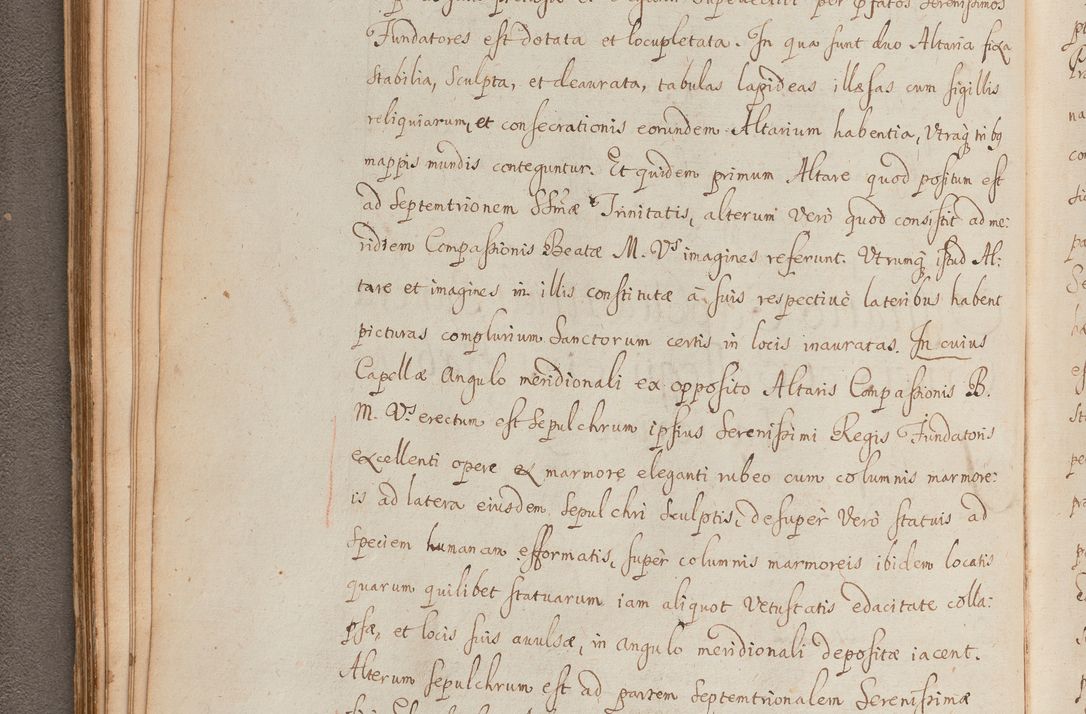 per pfatos Serenissimos
Fundatores est dotata et locupletata. In qua sunt duo Altaria fixa
Stabilia, Sculpta, et deaurata, tabulas lapideas illæsas cum sigillis
reliquiarum, et consecrationis eorundem Altarium habentia, Utraq; tribq
mappis mundis conteguntur. Et quidem primum Altare quod positum est
ad Septemtrionem SSmæ Trinitatis, alterum Verò quod consistit ad me:
ridiem Compassionis Beatæ M. Vs imagines referunt. Utrumq; istud Al:
tare et imagines in illis constitutæ à suis respectivè lateribus habent
picturas complurium Sanctorum certis in locis inauratas. In cuius
Capellæ angulo meridionali ex opposito Altaris Compassionis B.
M. Vs. erectum est Sepulchrum ipsius Serenissimi Regis Fundatoris
excellenti opere ex marmore eleganti rubeo cum columnis marmore:
is ad latera eiusdem Sepulchri Sculptis, desupèr Verò statuis ad
Speciem humanam efformatis, supèr columnis marmoreis ibidem locatis
quarum quilibet statuarum iam aliquot Vetustatis edacitate colla:
psæ, et locis suis avulsæ, in angulo meridionali depositæ iacent.
Alterum Sepulchrum est ad partem Septemtrionalem Serenissimæ